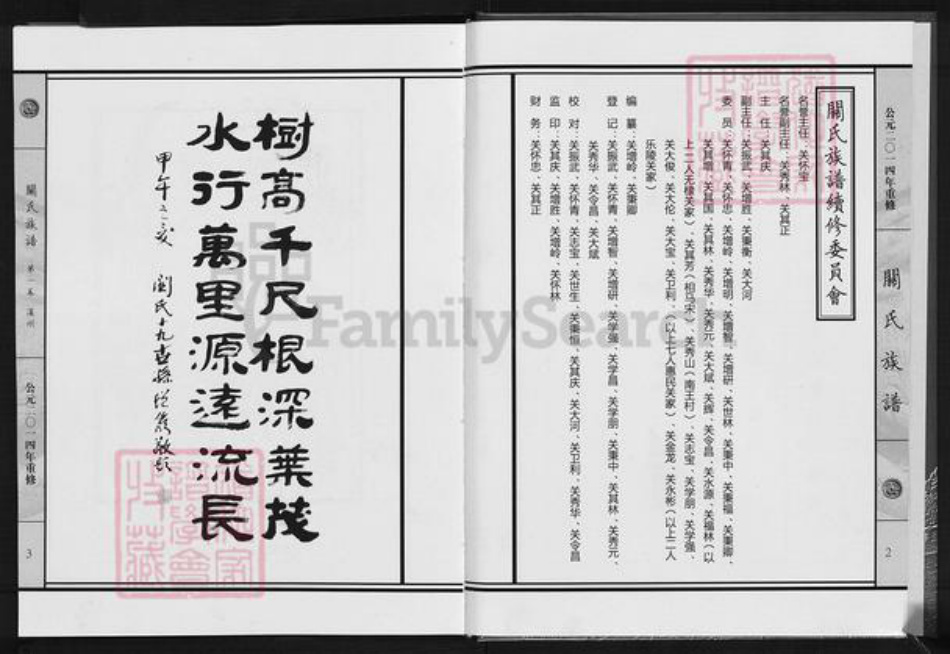 關氏族譜續修委員會
名誉主任：关怀宝
名誉副主任：关秀林、关其正
主任：关其庆
副主任：关振武、关增胜、关秉衡、关大河
委员：关怀青、关怀忠、关增岭、关增明、关增智、关增研、关世林、关秉中、关秉福、关秉卿、
关其增、关其国、关其林、关秀华、关秀元、关大斌、关辉、关令昌、关水源、关福林（以
上二人无棣关家）、关其芳（相马宋）、关秀山（南王村）、关志宝、关学朋、关学强、
关大俊、关大伦、关大宝、关卫利、（以上七人惠民关家）、关金龙、关永彬（以上二人
乐陵关家）
编纂：关增岭、关秉卿
登记：关振武、关怀青、关增智、关增研、关学强、关学昌、关学朋、关秉中、关其林、关秀元、
关秀华、关令昌、关大斌
校对：关振武、关怀青、关志宝、关世生、关秉恒、关其庆、关大河、关卫利、关秀华、关令昌
监印：关其庆、关增胜、关增岭、关怀林
财务：关怀忠、关其正
公元二〇一四年重修
關氏族譜
2
樹高千尺根深葉茂
水行萬里源遠流長
甲午之
關氏十九世孫
敬題
關氏族譜
第一卷
公元二〇一四年重修
3
FamilySearch